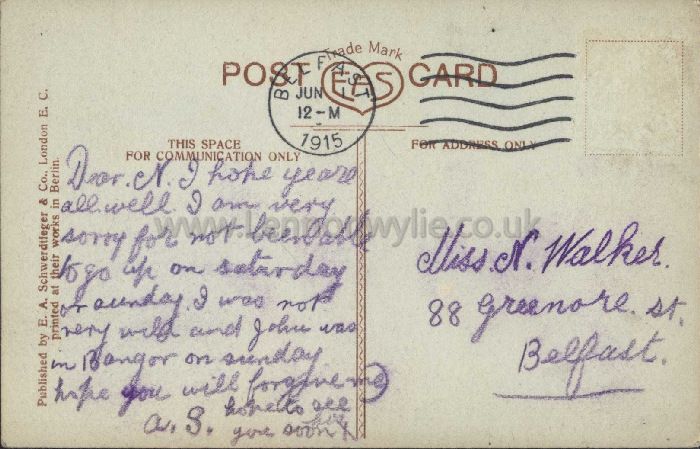 Trade Mark
POST EAS CARD
BELFAST
JUN 1
12-M
1915
THIS SPACE
FOR COMMUNICATION ONLY
FOR ADDRESS ONLY
Published by E. A. Schwerdtfeger & Co., London E. C.
printed at their works in Berlin.
Dear. N. I hope youre
all well I am very
sorry for not been able
to go up on saturday
or sunday. I was not
very well and John was
in Bangor on sunday
hope you will forgive me
a. S. hope to see
you soon
Miss N. Walker.
88 Greenore. st.
Belfast.
www.lennonwylie.co.uk